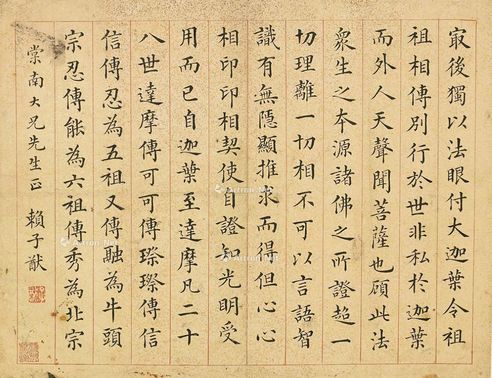 冣後獨以法眼付大迦葉令祖
祖相傳別行於世非私於迦葉
而外人天聲聞菩薩也顧此法
衆生之本源諸佛之所證超一
切理離一切相不可以言語智
識有無隱顯推求而得但心心
相印印相契使自證知光明受
用而已自迦葉至達摩凡二十
八世達摩傳可可傳璨璨傳信
信傳忍為五祖又傳融為牛頭
宗忍傳能為六祖傳秀為北宗
棠南大兄先生正 賴子猷